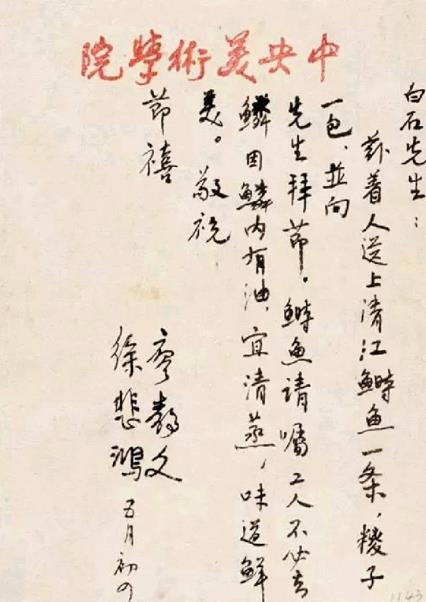 中央美術學院
白石先生：
玆着人送上清江鰣魚一条，糉子
一包，並向
先生拜節。鰣魚請囑工人不必去
鱗因鱗内有油，宜清蒸，味道鮮
美。敬祝
節禧
廖静文
徐悲鴻 五月初四
1143